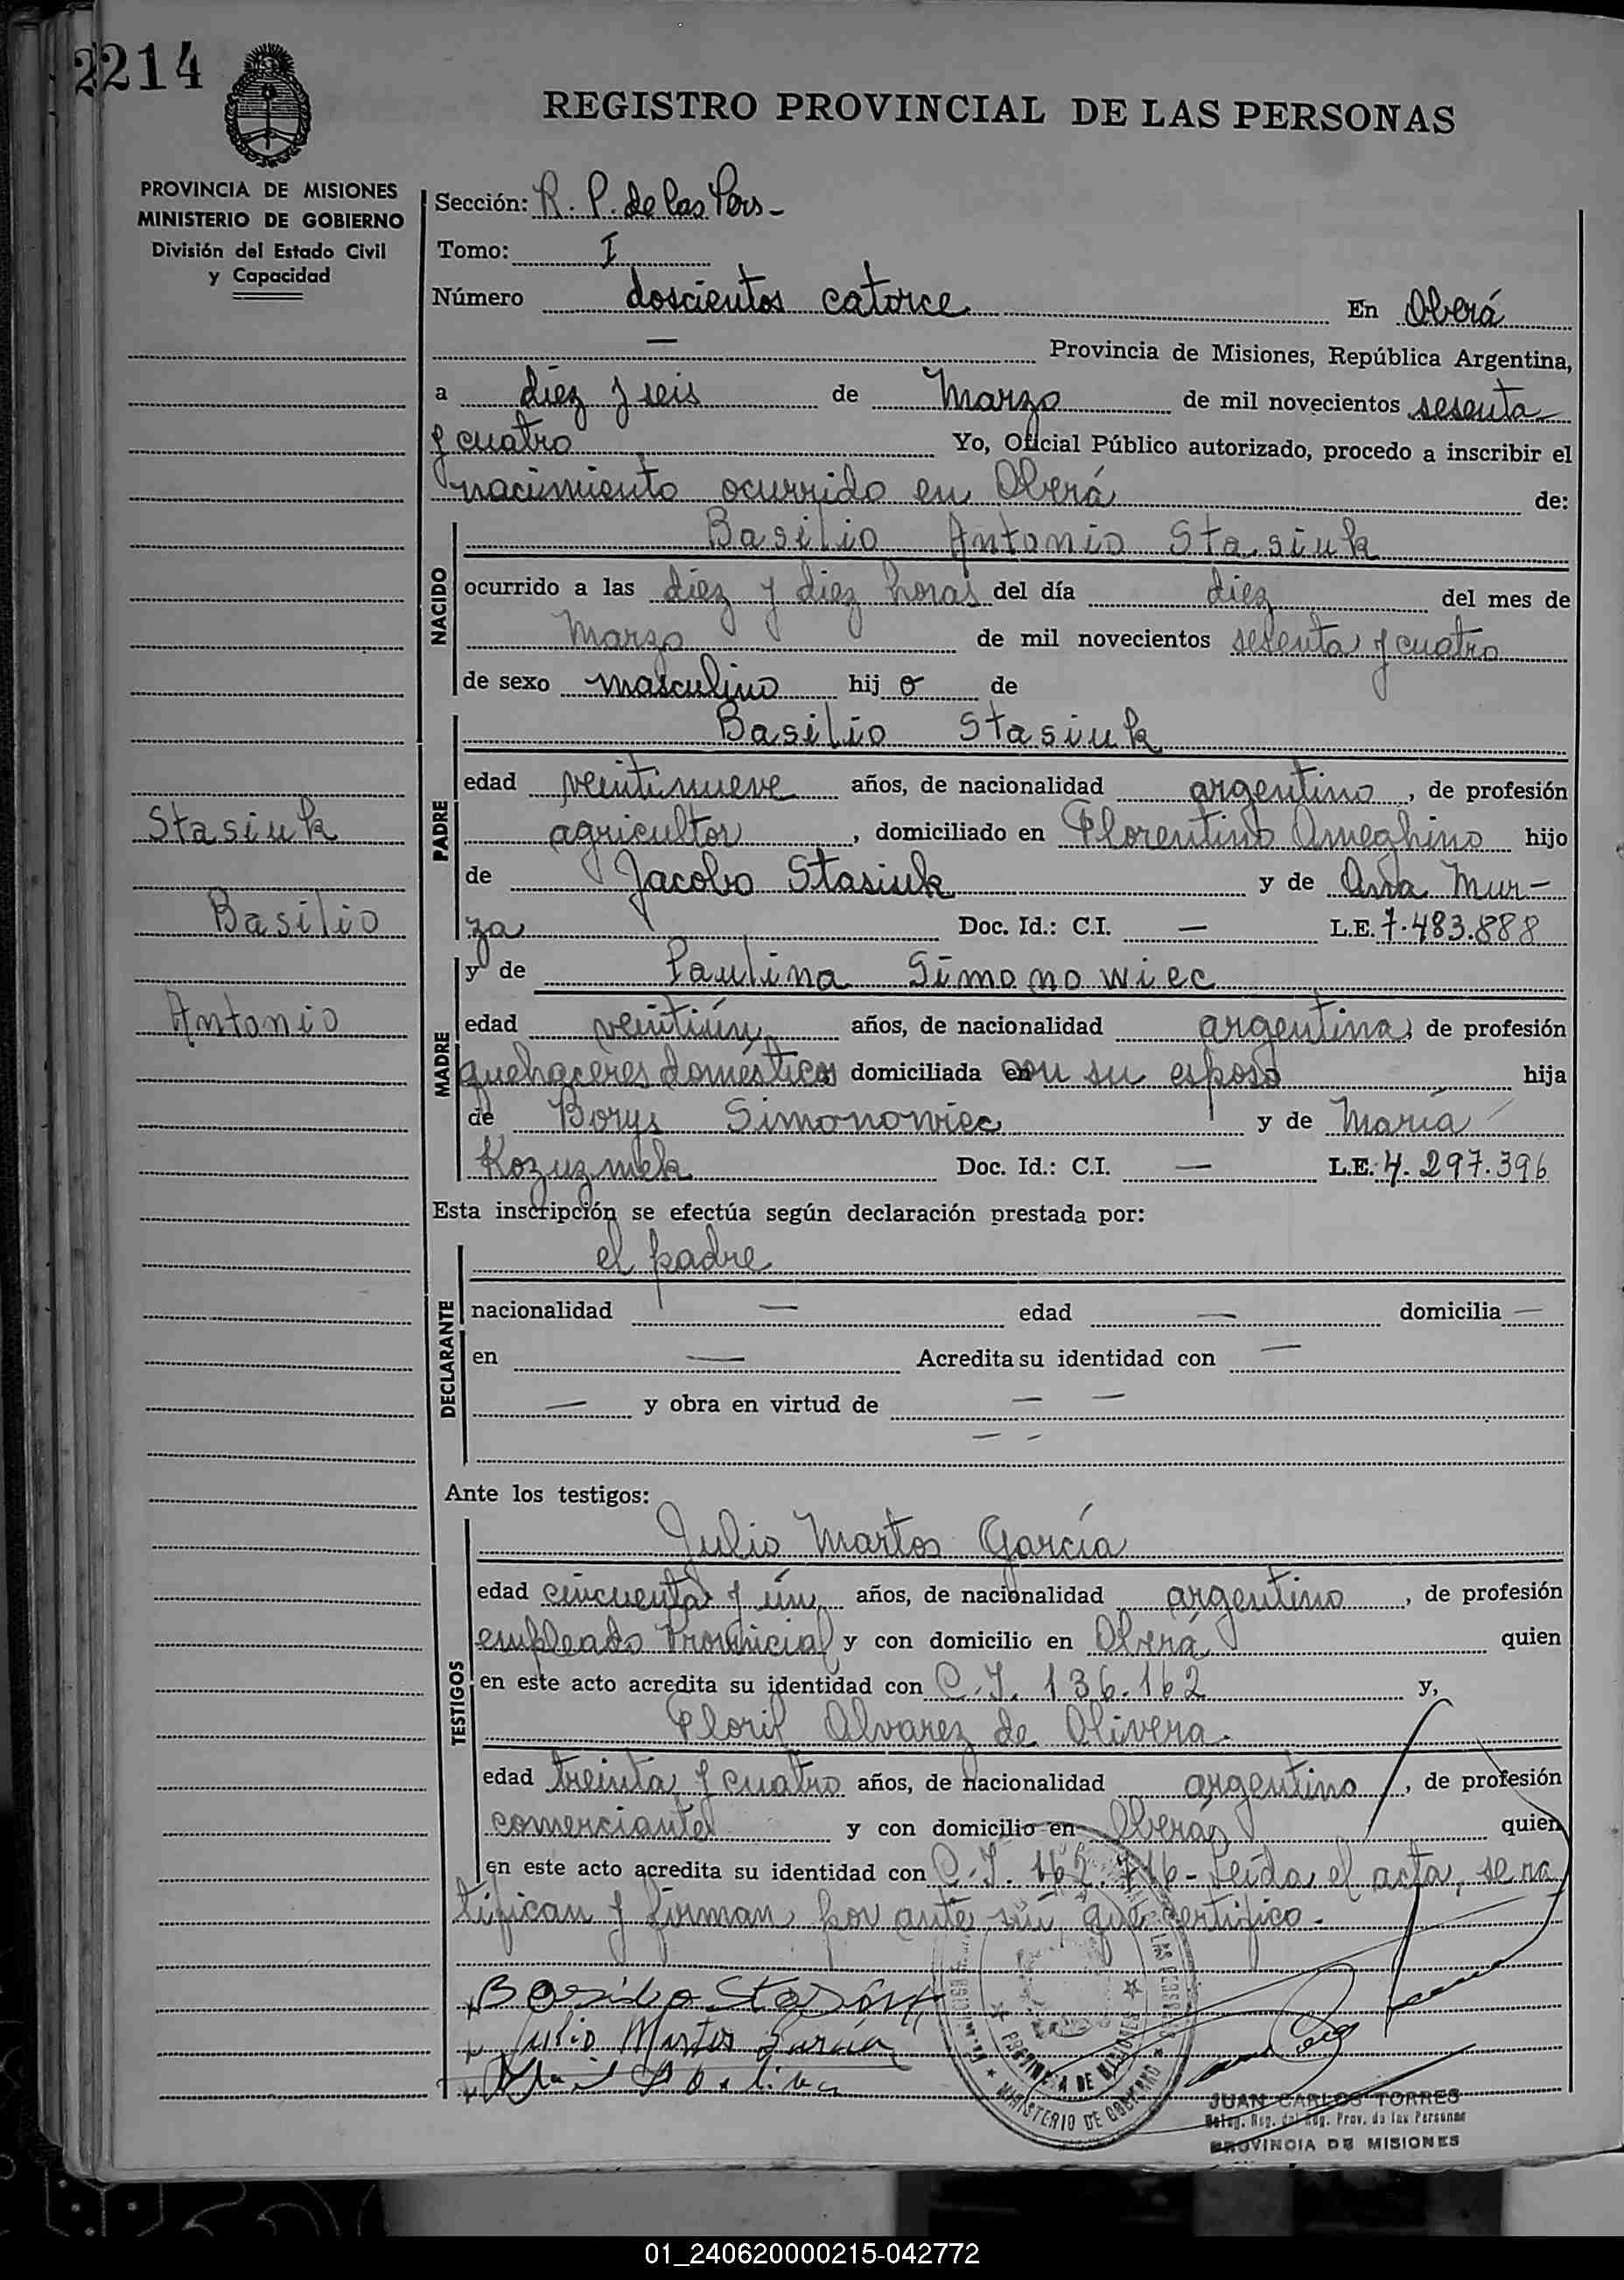 2214
REGISTRO PROVINCIAL DE LAS PERSONAS
PROVINCIA DE MISIONES
MINISTERIO DE GOBIERNO
División del Estado Civil
y Capacidad
Sección: R. P. de las Pers-
Tomo: I
Número doscientos catorce En Oberá
— Provincia de Misiones, República Argentina,
a diez y seis de Marzo de mil novecientos sesenta
y cuatro Yo, Oficial Público autorizado, procedo a inscribir el
nacimiento ocurrido en Oberá de:
NACIDO
Basilio Antonio Stasiuk
ocurrido a las diez y diez horas del día diez del mes de
Marzo de mil novecientos sesenta y cuatro
de sexo masculino hij o de
PADRE
Basilio Stasiuk
edad veintinueve años, de nacionalidad argentino, de profesión
agricultor, domiciliado en Florentino Ameghino hijo
de Jacobo Stasiuk y de Ana Mur-
za Doc. Id.: C.I. — L.E. 7.483.888
Stasiuk
Basilio
Antonio
MADRE
y de Paulina Simonowiec
edad veintiún años, de nacionalidad argentina, de profesión
quehaceres domésticos domiciliada con su esposo hija
de Borys Simonowiec y de María
Kozuzmek Doc. Id.: C.I. — L.E. 4.297.396
Esta inscripción se efectúa según declaración prestada por:
DECLARANTE
el padre
nacionalidad — edad — domicilia —
en — Acredita su identidad con —
— y obra en virtud de — —
— -
Ante los testigos:
TESTIGOS
Julio Martos García
edad cincuenta y ún años, de nacionalidad argentino, de profesión
empleado Provincial y con domicilio en Oberá quien
en este acto acredita su identidad con C.I. 136.162 y,
Floril Alvarez de Olivera.
edad treinta y cuatro años, de nacionalidad argentino, de profesión
comerciante y con domicilio en Oberá quien
en este acto acredita su identidad con C.I. 162.716- Leída el acta, se ra
tifican y firman por ante mí que certifico.
Basilio Stasiuk
Julio Martos García
PROVINCIA DE MISIONES
MINISTERIO DE GOBIERNO
JUAN CARLOS TORRES
Reg. Prov. de las Personas
PROVINCIA DE MISIONES
01_240620000215-042772